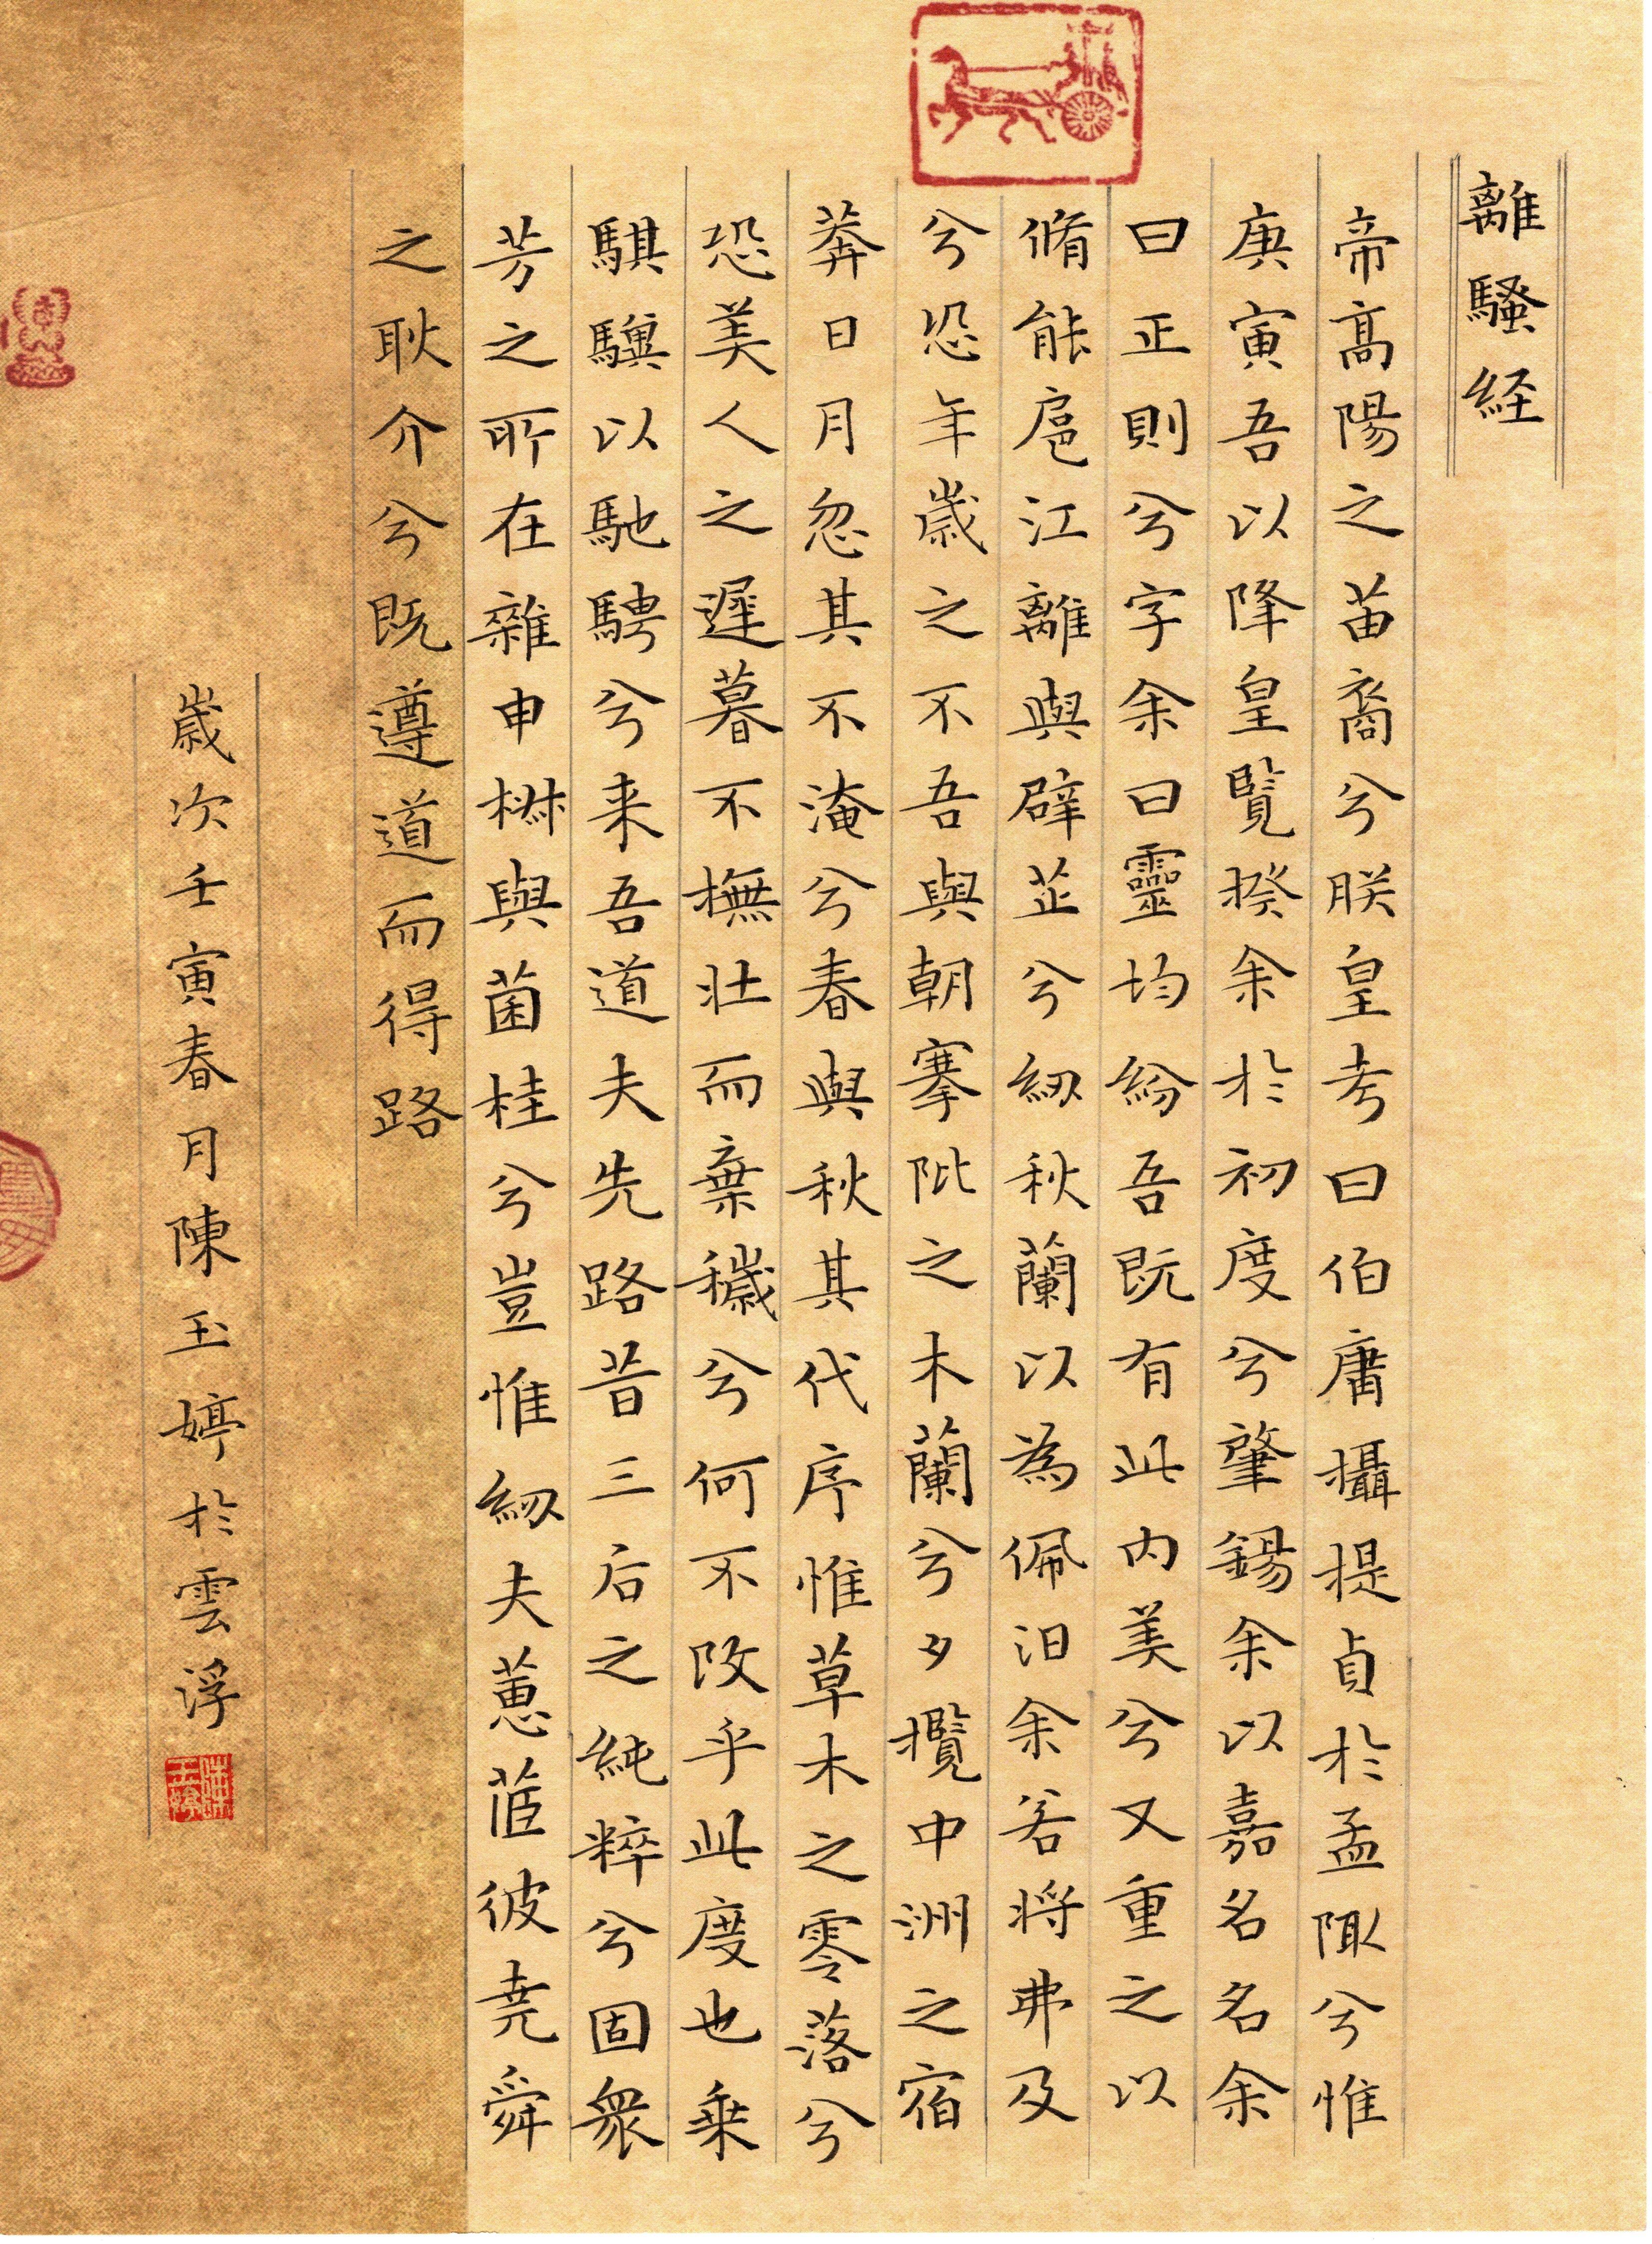 離騷経
帝髙陽之苗裔兮朕皇考曰伯庸攝提貞於孟陬兮惟
庚寅吾以降皇覽揆余於初度兮肇錫余以嘉名名余
曰正則兮字余曰靈均紛吾既有此内美兮又重之以
脩能扈江離與辟芷兮紉秋蘭以為佩汩余若将弗及
兮恐年歳之不吾與朝搴阰之木蘭兮夕攬中洲之宿
莽日月忽其不淹兮春與秋其代序惟草木之零落兮
恐美人之遲暮不撫壮而棄穢兮何不改乎此度也乗
騏驥以馳騁兮来吾道夫先路昔三后之純粹兮固衆
芳之所在雜申椒與菌桂兮豈惟紉夫蕙茝彼尭舜
之耿介兮既遵道而得路
歳次壬寅春月陳玉婷於雲浮
陳玉婷